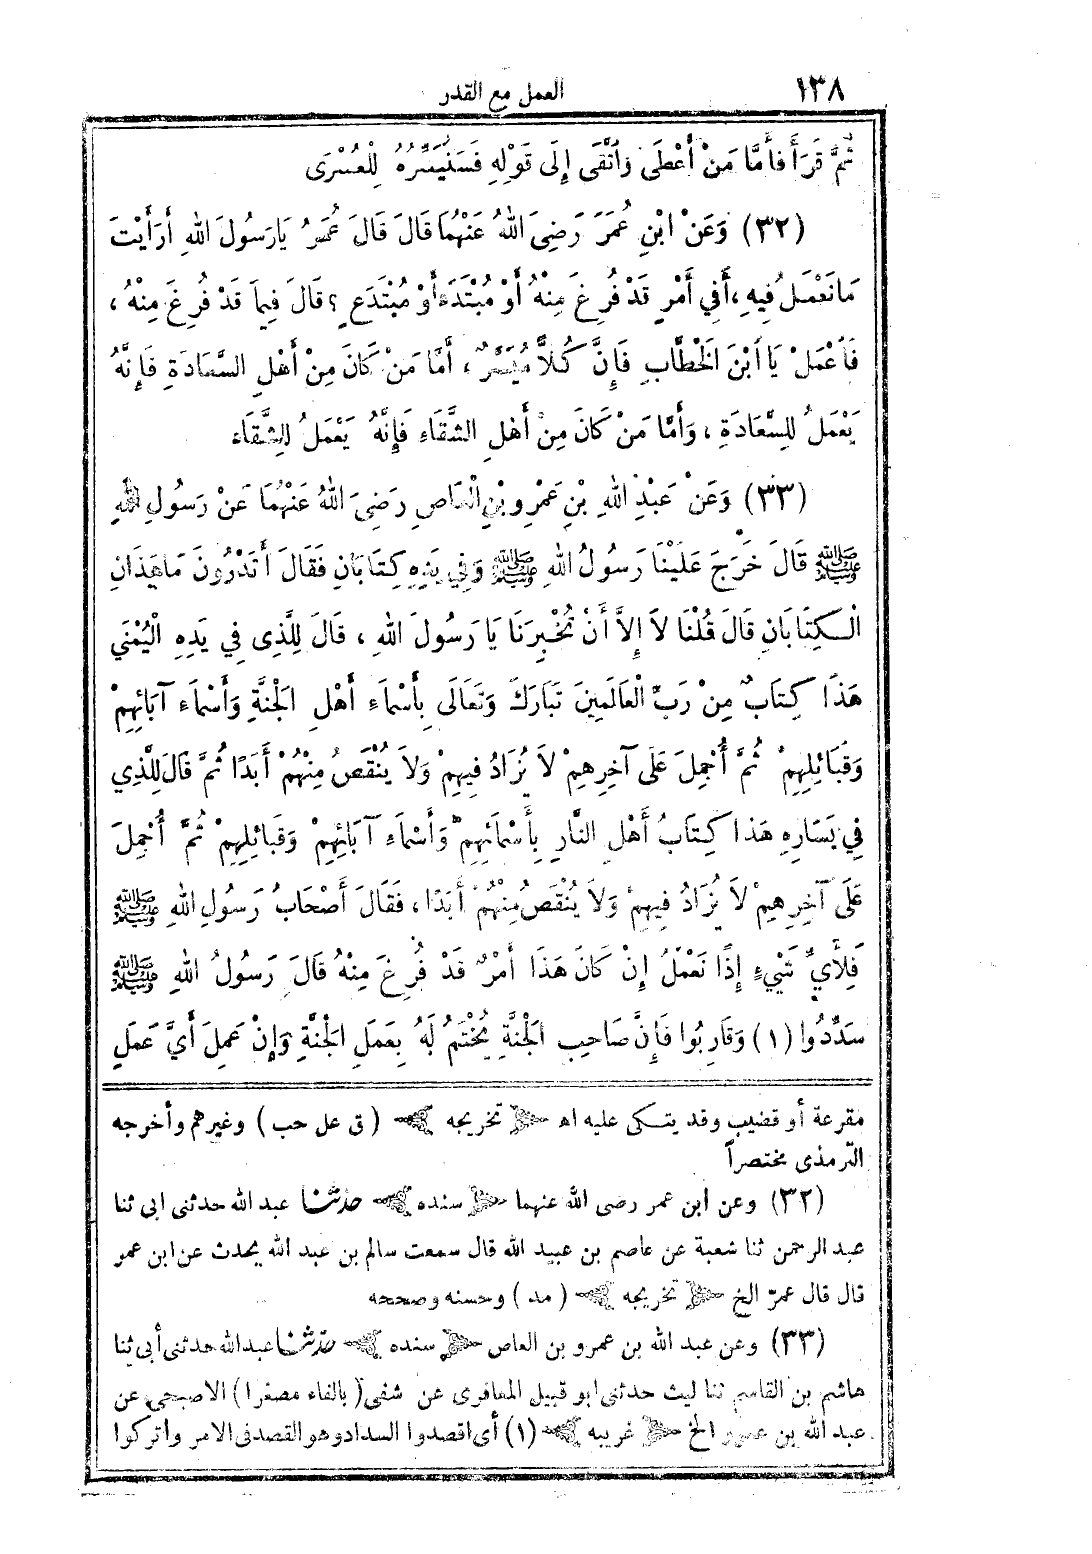 ١٣٨
العمل مع القدر
ثُمَّ قَرَأَ فَأَمَّا مَنْ أَعْطَى وَاتَّقَى إِلَى قَوْلِهِ فَسَنُيَسِّرُهُ لِلْعُسْرَى
(٣٢) وَعَنْ ابْنِ عُمَرَ رَضِيَ اللهُ عَنْهُمَا قَالَ قَالَ عُمَرُ يَارَسُولَ اللهِ أَرَأَيْتَ
مَانَعْمَلُ فِيهِ، أَفِي أَمْرٍ قَدْ فُرِغَ مِنْهُ أَوْ مُبْتَدَءٍ أَوْ مُبْتَدَعٍ ؟ قَالَ فِيمَا قَدْ فُرِغَ مِنْهُ ،
فَاعْمَلْ يَا ابْنَ الْخَطَّابِ فَإِنَّ كُلاًّ مُيَسَّرٌ ، أَمَّا مَنْ كَانَ مِنْ أَهْلِ السَّعَادَةِ فَإِنَّهُ
يَعْمَلُ لِلسَّعَادَةِ ، وَأَمَّا مَنْ كَانَ مِنْ أَهْلِ الشَّقَاءِ فَإِنَّهُ يَعْمَلُ لِلشَّقَاءِ
(٣٣) وَعَنْ عَبْدِ اللهِ بْنِ عَمْرِو بْنِ الْعَاصِ رَضِيَ اللهُ عَنْهُمَا عَنْ رَسُولِ اللهِ
ﷺ قَالَ خَرَجَ عَلَيْنَا رَسُولُ اللهِ ﷺ وَفِي يَدِهِ كِتَابَانِ فَقَالَ أَتَدْرُونَ مَاهَذَانِ
الْكِتَابَانِ قَالَ قُلْنَا لاَ إِلاَّ أَنْ تُخْبِرَنَا يَا رَسُولَ اللهِ ، قَالَ لِلَّذِى فِي يَدِهِ الْيُمْنَى
هَذَا كِتَابٌ مِنْ رَبِّ الْعَالَمِينَ تَبَارَكَ وَتَعَالَى بِأَسْمَاءِ أَهْلِ الْجَنَّةِ وَأَسْمَاءِ آبَائِهِمْ
وَقَبَائِلِهِمْ ثُمَّ أُجْمِلَ عَلَى آخِرِهِمْ لاَ يُزَادُ فِيهِمْ وَلاَ يُنْقَصُ مِنْهُمْ أَبَدًا ثُمَّ قَالَ لِلَّذِي
فِي يَسَارِهِ هَذَا كِتَابُ أَهْلِ النَّارِ بِأَسْمَائِهِمْ وَأَسْمَاءِ آبَائِهِمْ وَقَبَائِلِهِمْ ثُمَّ أُجْمِلَ
عَلَى آخِرِهِمْ لاَ يُزَادُ فِيهِمْ وَلاَ يُنْقَصُ مِنْهُمْ أَبَدًا ، فَقَالَ أَصْحَابُ رَسُولِ اللهِ ﷺ
فَلِأَيِّ شَيْءٍ إِذًا نَعْمَلُ إِنْ كَانَ هَذَا أَمْرٌ قَدْ فُرِغَ مِنْهُ قَالَ رَسُولُ اللهِ ﷺ
سَدِّدُوا (١) وَقَارِبُوا فَإِنَّ صَاحِبَ الْجَنَّةِ يُخْتَمُ لَهُ بِعَمَلِ الْجَنَّةِ وَإِنْ عَمِلَ أَيَّ عَمَلٍ
مقرعة أو قضيب وقد يتكى عليه اه تخريجه (ق عل حب) وغيرهم وأخرجه
الترمذى مختصراً
(٣٢) وعن ابن عمر رضى الله عنهما سنده حدثنا عبد الله حدثنى ابى ثنا
عبد الرحمن ثنا شعبة عن عاصم بن عبيد الله قال سمعت سالم بن عبد الله يحدث عن ابن عمر
قال قال عمر الخ تخريجه (مد) وحسنه وصححه
(٣٣) وعن عبد الله بن عمرو بن العاص سنده حدثنا عبدالله حدثنى أبى ثنا
هاشم بن القاسم ثنا ليث حدثنى ابو قبيل المعافرى عن شفى (بالفاء مصغرا) الاصبحى عن
عبد الله بن عمرو الخ غريبه (١) أى اقصدوا السداد وهو القصد فى الامر واتركوا